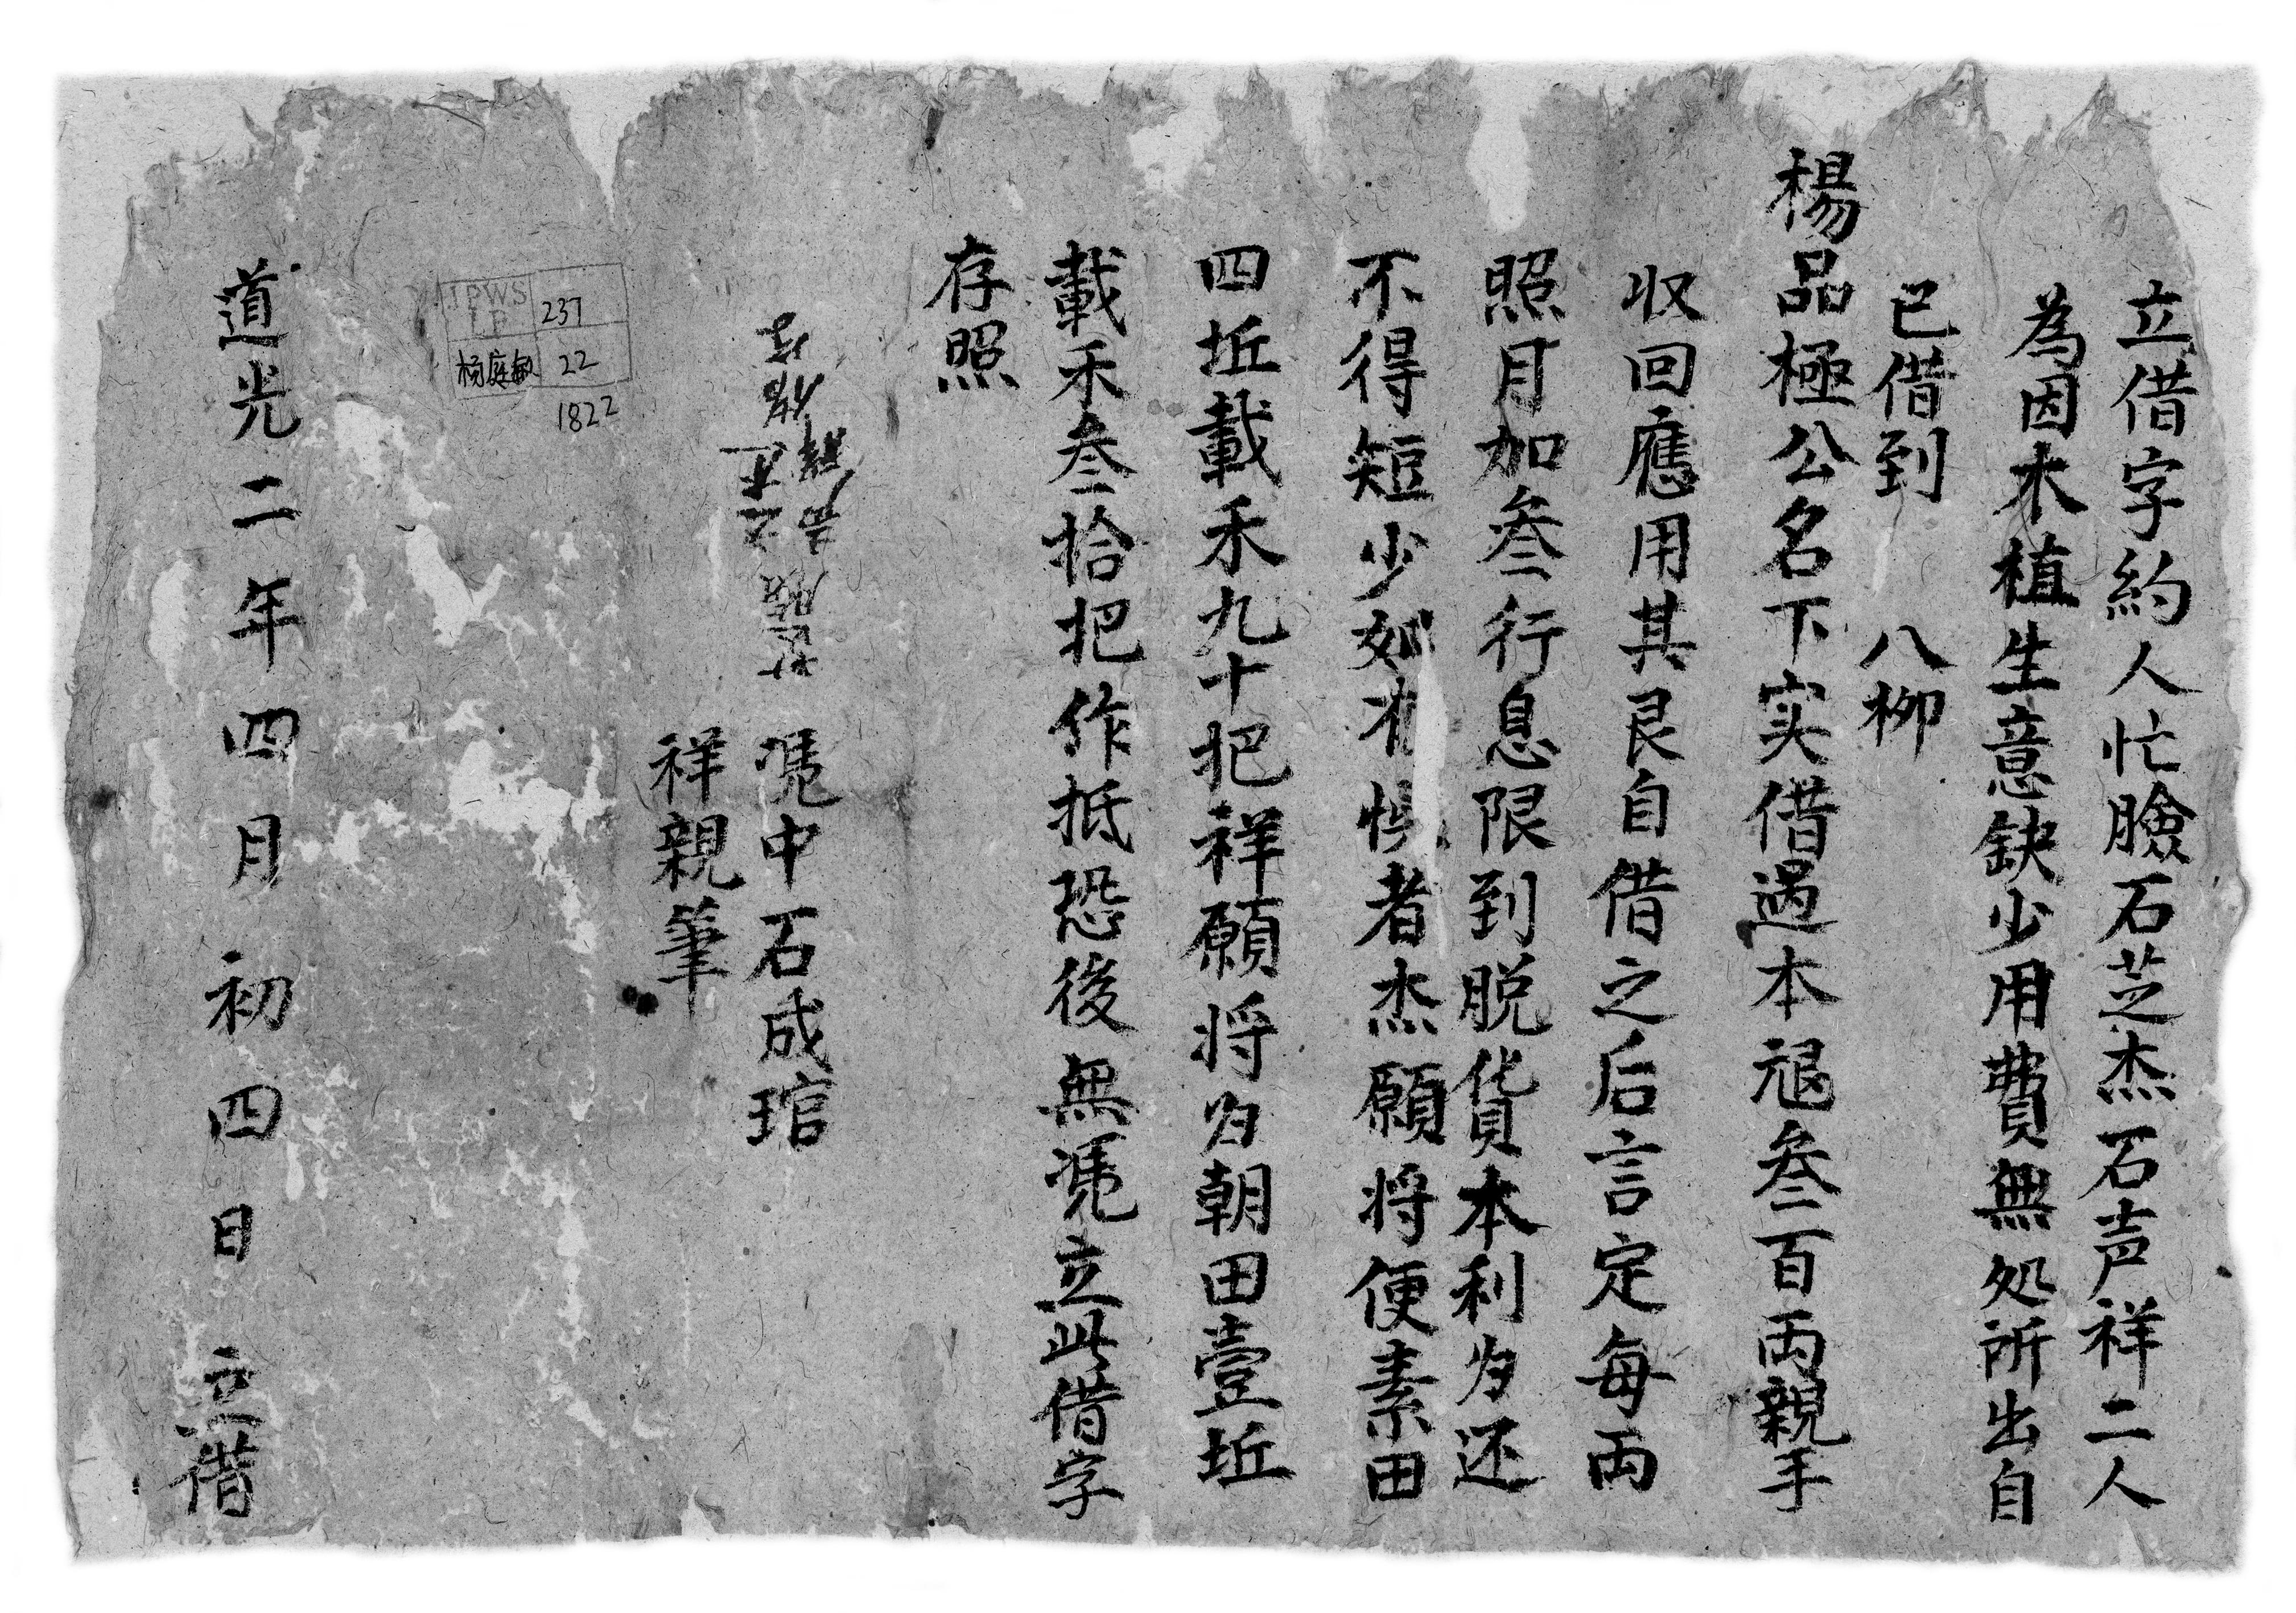 立借字約人忙臉石芝杰石声祥二人
為因木植生意缺少用費無処所出自
已借到 八柳
楊品極公名下实借過本艮叁百両親手
収回應用其艮自借之后言定每両
照月加叁行息限到脱貨本利为还
不得短少如有悞者杰願将便素田
四坵載禾九十把祥願将为朝田壹坵
載禾叁拾把作抵恐後無凴立此借字
存照
凴中石成琯
祥親筆
道光二年四月初四日 立借
237
杨庭敏 22
1822